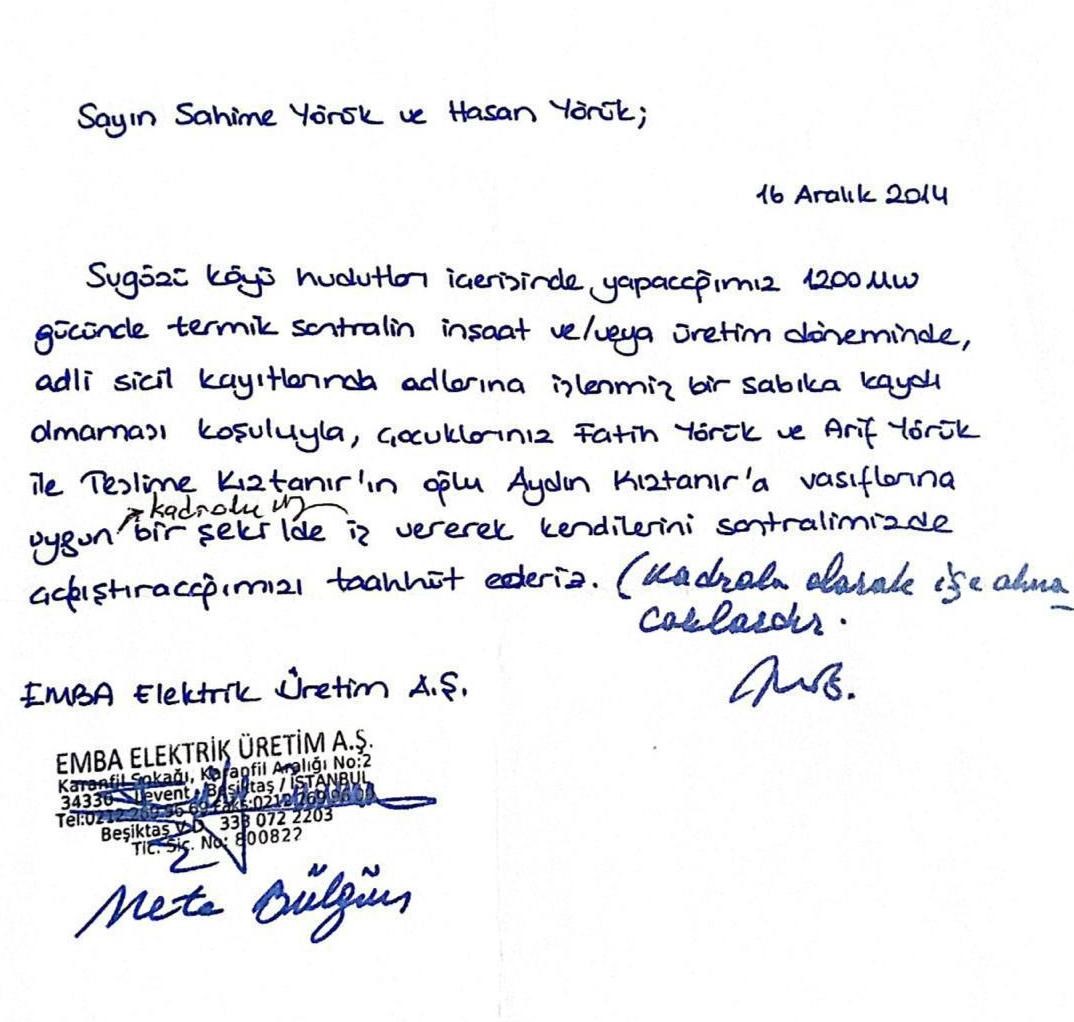 Sayın Sahime Yörük ve Hasan Yörük;
16 Aralık 2014
Sugözü köyü hudutları içerisinde yapacağımız 1200 MW
gücünde termik santralin inşaat ve/veya üretim döneminde,
adli sicil kayıtlarında adlarına işlenmiş bir sabıka kaydı
olmaması koşuluyla, çocuklarınız Fatih Yörük ve Arif Yörük
ile Teslime Kıztanır'ın oğlu Aydın Kıztanır'a vasıflarına
kadrolu
uygun bir şekilde iş vererek kendilerini santralimizde
çalıştıracağımızı taahhüt ederiz. (Kadrolu olarak işe alına
caklardır.
EMBA Elektrik Üretim A.Ş.
EMBA ELEKTRİK ÜRETİM A.Ş.
Karanfil Sokağı, Karanfil Aralığı No:2
34330 Levent Beşiktaş / İSTANBUL
Tel:0212 269 Faks:0212 269
Beşiktaş V.D. 333 072 2203
Tic. Sic. No: 800822
Mete Bülgün